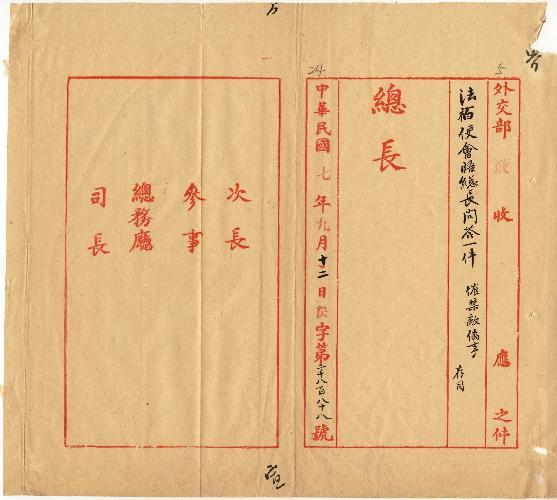 外交部 收 應 之件
法柏使會晤總長問答一件 催禁敵僑事 存司
總長
中華民國 七 年 九 月 十二 日 字第 千八百八十八 號
次長
參事
總務廳
司長
24
5